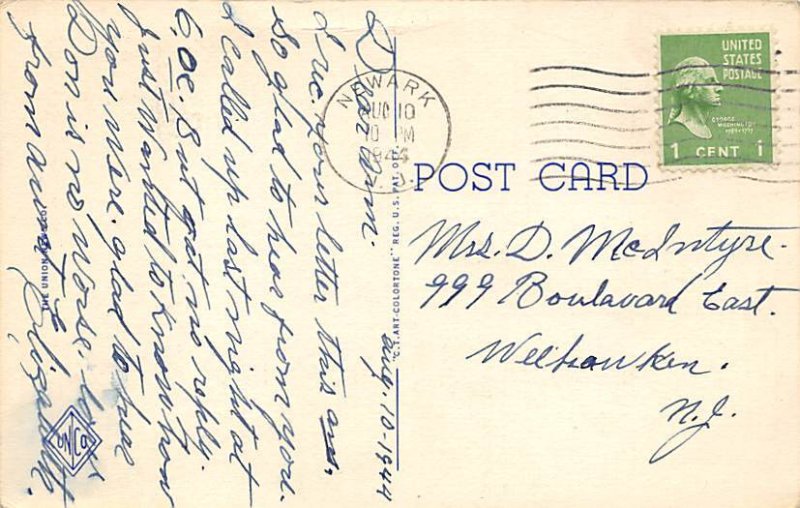 Aug. 10-1944
Dear Wm.
I rec. your letter this am.
So glad to hear from you.
I called up last night at
6. oc. But got no reply.
Just wanted to know how
you were. glad to hear
Don is no worse.
from aunt Elizabeth.
NEWARK
AUG 10
10 PM
1944
N. J.
UNITED
STATES
POSTAGE
GEORGE
WASHINGTON
1789-1797
1 CENT 1
POST CARD
Mrs. D. McIntyre.
999 Boulavard East.
Weehawken.
N.J.
"C.T. ART-COLORTONE" REG. U.S. PAT. OFF.
THE UNION NEWS CO.
UNCO